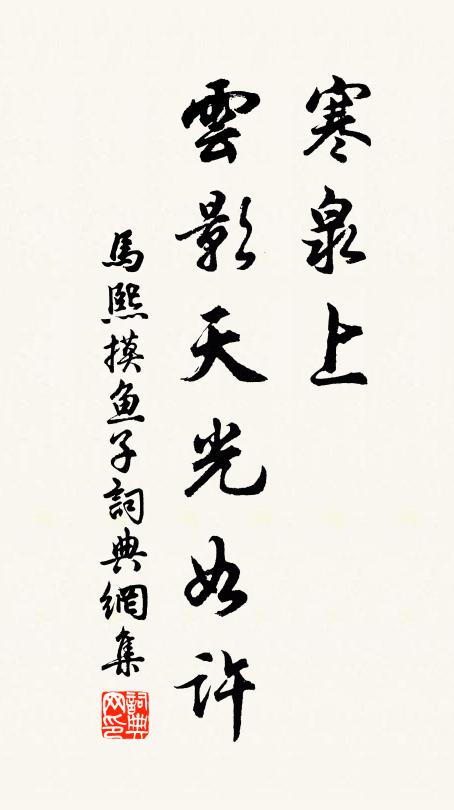 寒泉上
雲影天光如許
馬熙摸魚子詞典網集
詞典網印